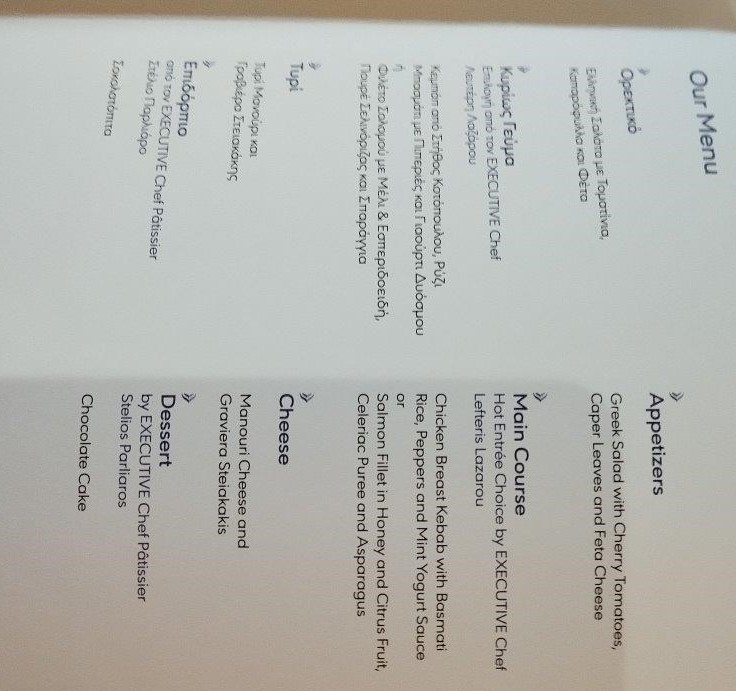 Our Menu
Ορεκτικό
Ελληνική Σαλάτα με Τοματίνια,
Καπαρόφυλλα και Φέτα
Κυρίως Γεύμα
Επιλογή από τον EXECUTIVE Chef
Λευτέρη Λαζάρου
Κεμπάπ από Στήθος Κοτόπουλου, Ρύζι
Μπασμάτι με Πιπεριές και Γιαούρτι Δυόσμου
ή
Φιλέτο Σολομού με Μέλι & Εσπεριδοειδή,
Πουρέ Σελινόριζας και Σπαράγγια
Τυρί
Τυρί Μανούρι και
Γραβιέρα Στειακάκης
Επιδόρπιο
από τον EXECUTIVE Chef Pâtissier
Στέλιο Παρλιάρο
Σοκολατόπιτα
Appetizers
Greek Salad with Cherry Tomatoes,
Caper Leaves and Feta Cheese
Main Course
Hot Entrée Choice by EXECUTIVE Chef
Lefteris Lazarou
Chicken Breast Kebab with Basmati
Rice, Peppers and Mint Yogurt Sauce
or
Salmon Fillet in Honey and Citrus Fruit,
Celeriac Puree and Asparagus
Cheese
Manouri Cheese and
Graviera Steiakakis
Dessert
by EXECUTIVE Chef Pâtissier
Stelios Parliaros
Chocolate Cake